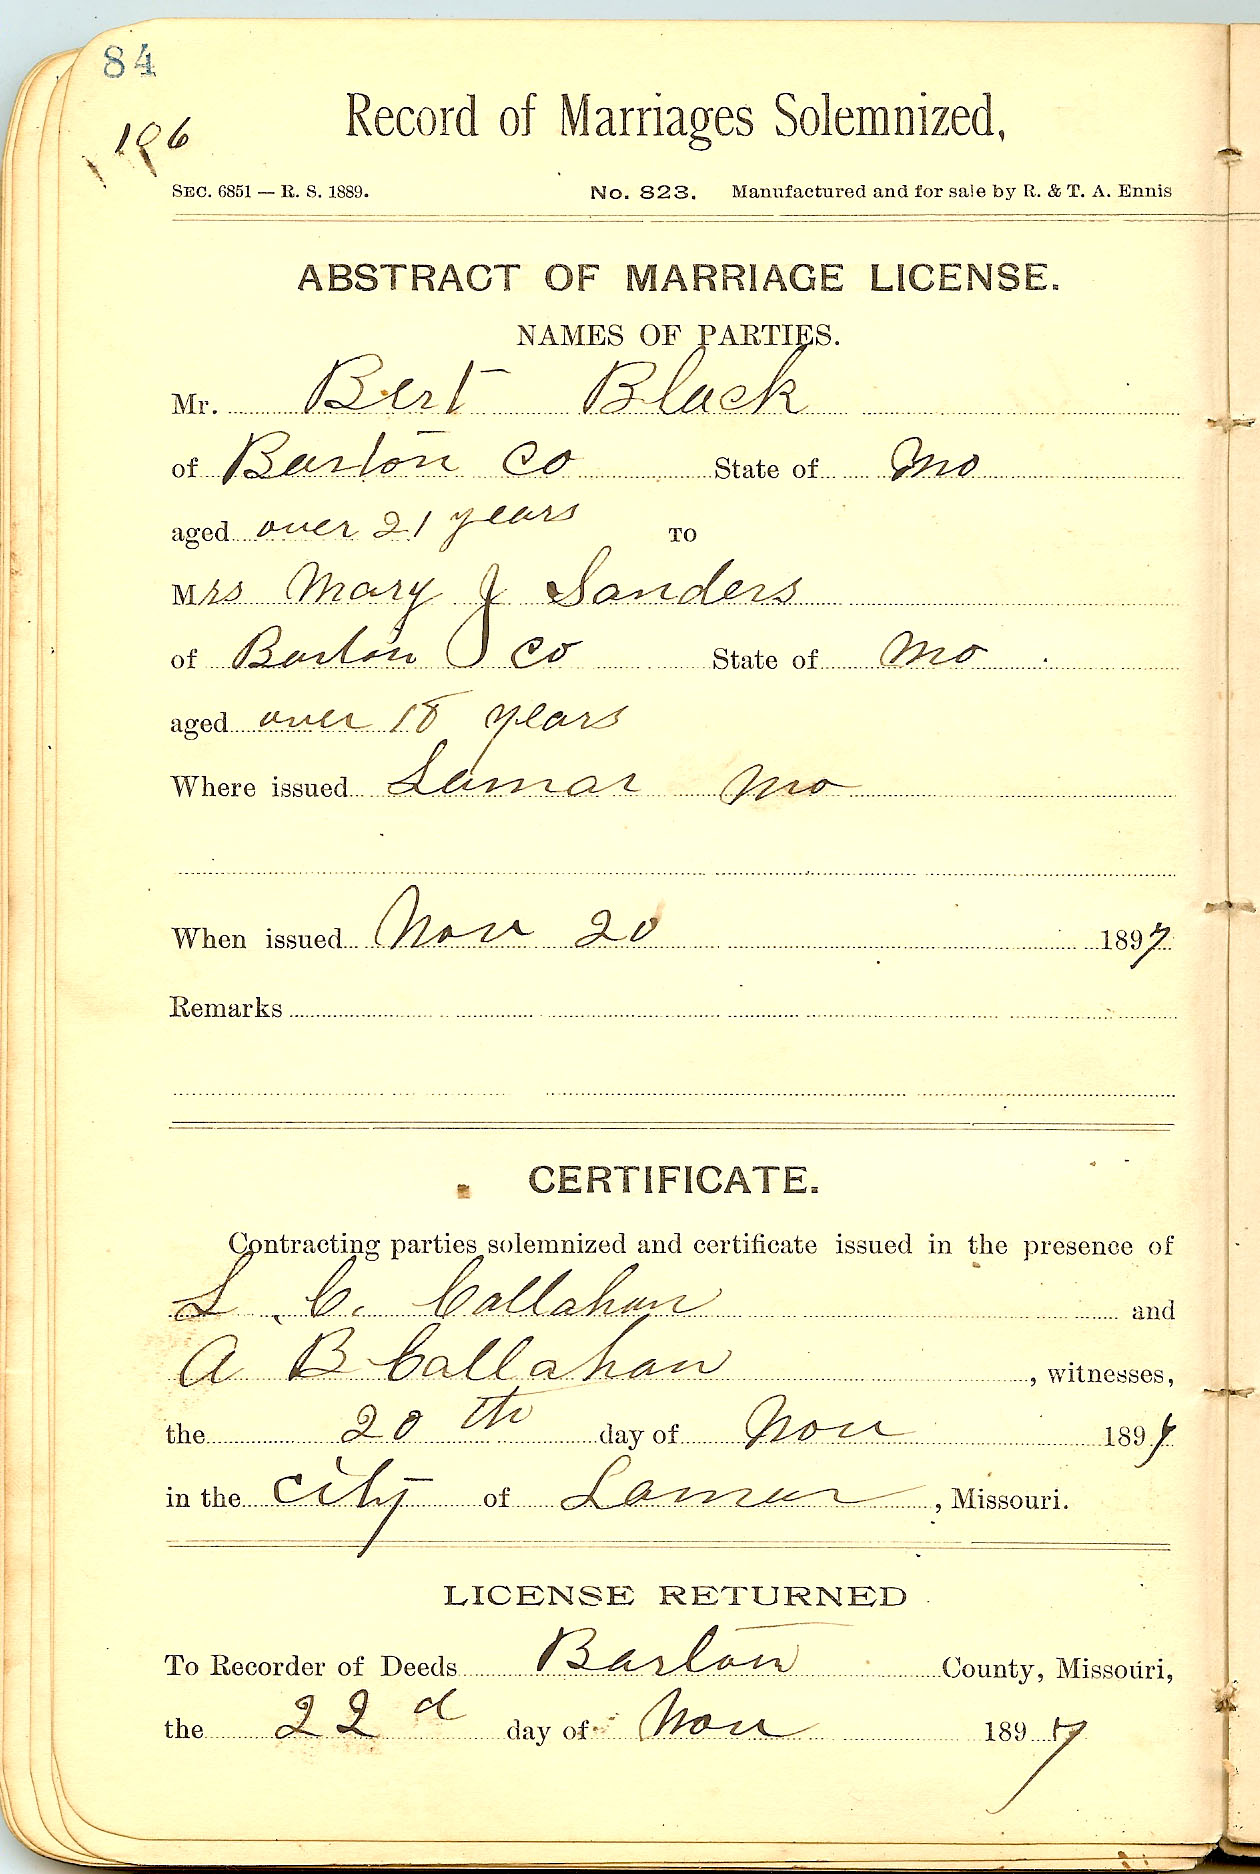 84
196
Record of Marriages Solemnized,
SEC. 6851 — R. S. 1889. No. 823. Manufactured and for sale by R. & T. A. Ennis
ABSTRACT OF MARRIAGE LICENSE.
NAMES OF PARTIES.
Mr. Bert Black
of Barton Co State of Mo
aged over 21 years TO
Mrs Mary J Sanders
of Barton Co State of Mo
aged over 18 years
Where issued Lamar Mo
When issued Nov 20 1897
Remarks
CERTIFICATE.
Contracting parties solemnized and certificate issued in the presence of
L. C. Callahan and
A B Callahan, witnesses,
the 20th day of Nov 1897
in the city of Lamar, Missouri.
LICENSE RETURNED
To Recorder of Deeds Barton County, Missouri,
the 22d day of Nov 1897